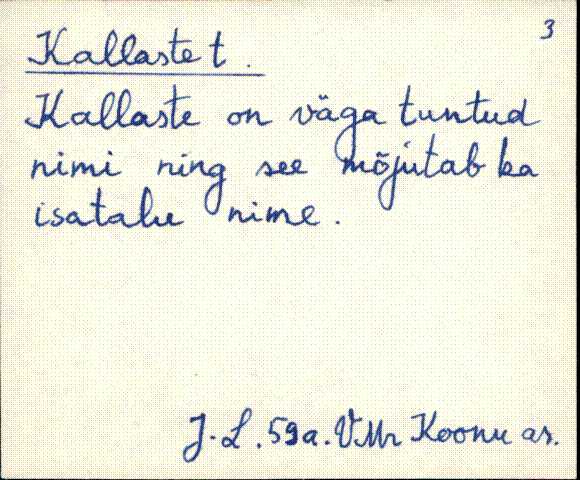 3
Kallaste t.
Kallaste on väga tuntud
nimi ning see mõjutab ka
isatalu nime.
J. L. 59a. VMr Koonu as.